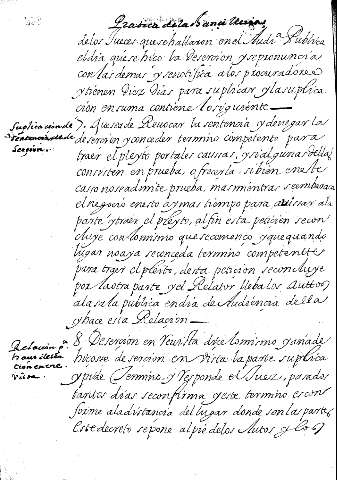 Practica de la Chancilleria
de los Jueces que se hallaron en el Audi.ª Publica
el dia que se hico la Deserçion y se pronuncia
con las demas y se notifica a los procuradores
y tienen Diez Dias para suplicar, y la suplica
cion en suma contiene lo siguiente
Suplicacion de
sentencia de de
serçion.
7. Que se a de Revocar la sentencia y denegar la
deserçion y conceder termino competente para
traer el pleyto por tales causas, y si algunas dellas
consisten en prueba, ofrecerla si bien en este
caso no se admite prueba, mas mientras se embaraza
el negocio en esto ay mas tiempo para avissar a la
parte y traer el pleyto, al fin esta peticion se con
cluye con lo mismo que se començo y que quando
lugar no aya se conceda termino competente
para traer el pleito, desta peticion se concluye
por la otra parte, y el Relator lleba los Auttos
a la sala publica en dia de Audiencia della
y hace esta Relaçion
8 Deserçion en Revista dize lo mismo y añade
hicose de serçion en Vista la parte suplica
y pide Termino, y Responde el Juez, pasados
tantos dias se confirma y este termino es con
forme a la distancia del lugar donde son las partes
Este decreto se pone al pie de los Autos y lo